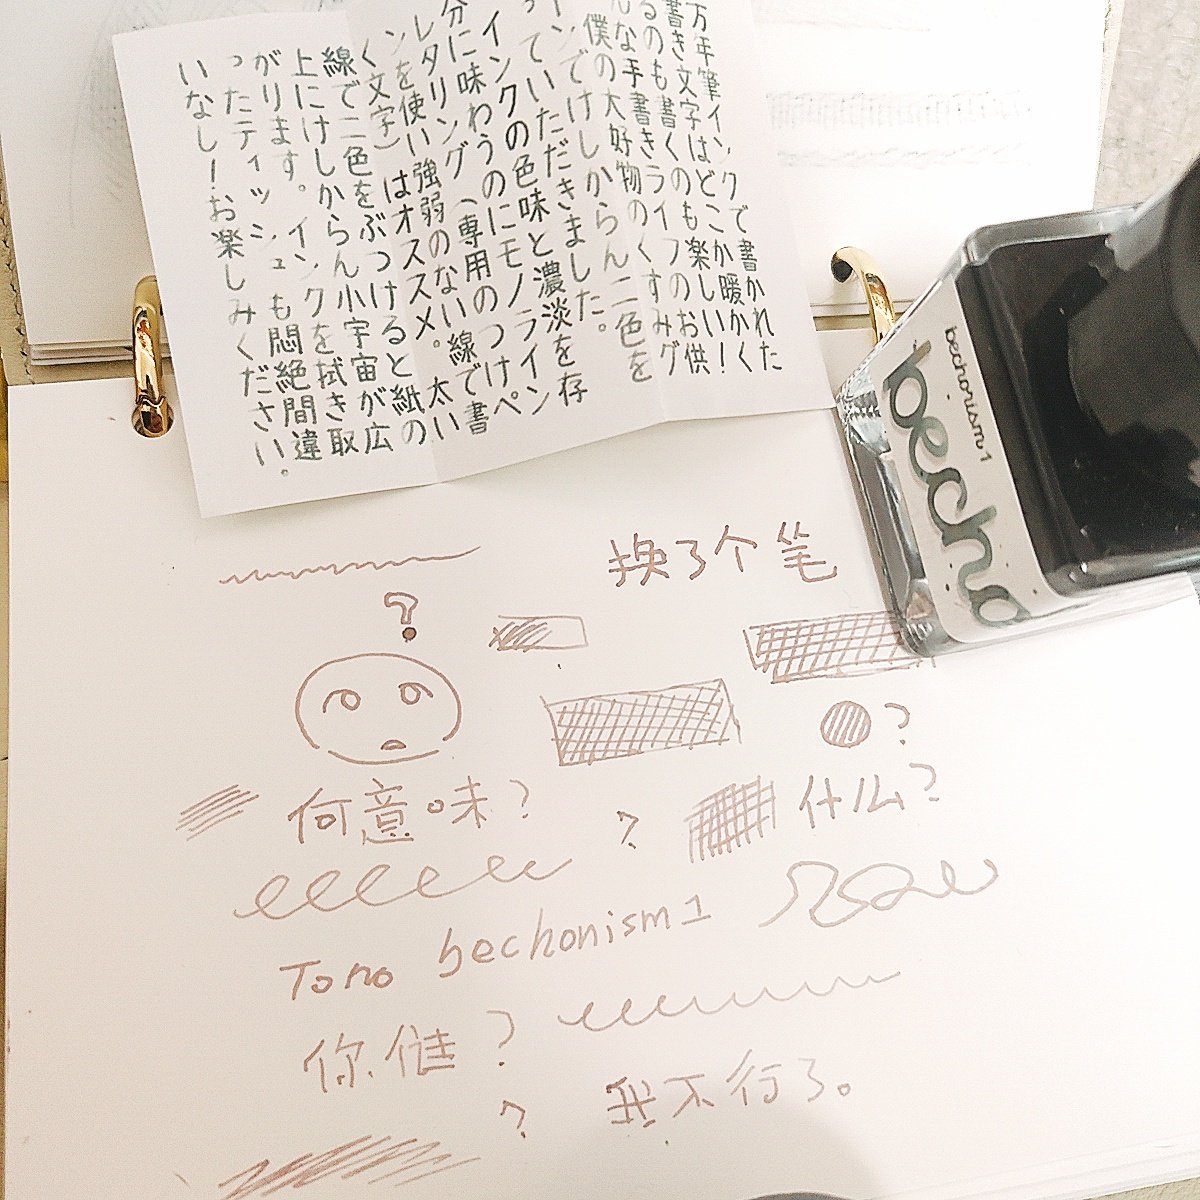 万年筆インクで書かれた
書き文字はどこか暖かく
るのも書くのも楽しい!
んな手書きライフのお供
僕の大好物のくすみグ
ーンでけしからん二色を
っていただきました。
インクの色味と濃淡を存
分に味わうのにモノライン
レタリング(専用のつけペ
ンを使い強弱のない線で書
く文字)はオススメ。太い
線で二色をぶつけると紙の
上にけしからん小宇宙が広
がります。インクを拭き取
ったティッシュも悶絶間違
いなし!お楽しみください。
bechorism 1
becho
换了个笔
?
?
何意味?
?
什么?
Tono bechonism1
你倠?
?
我不行了。